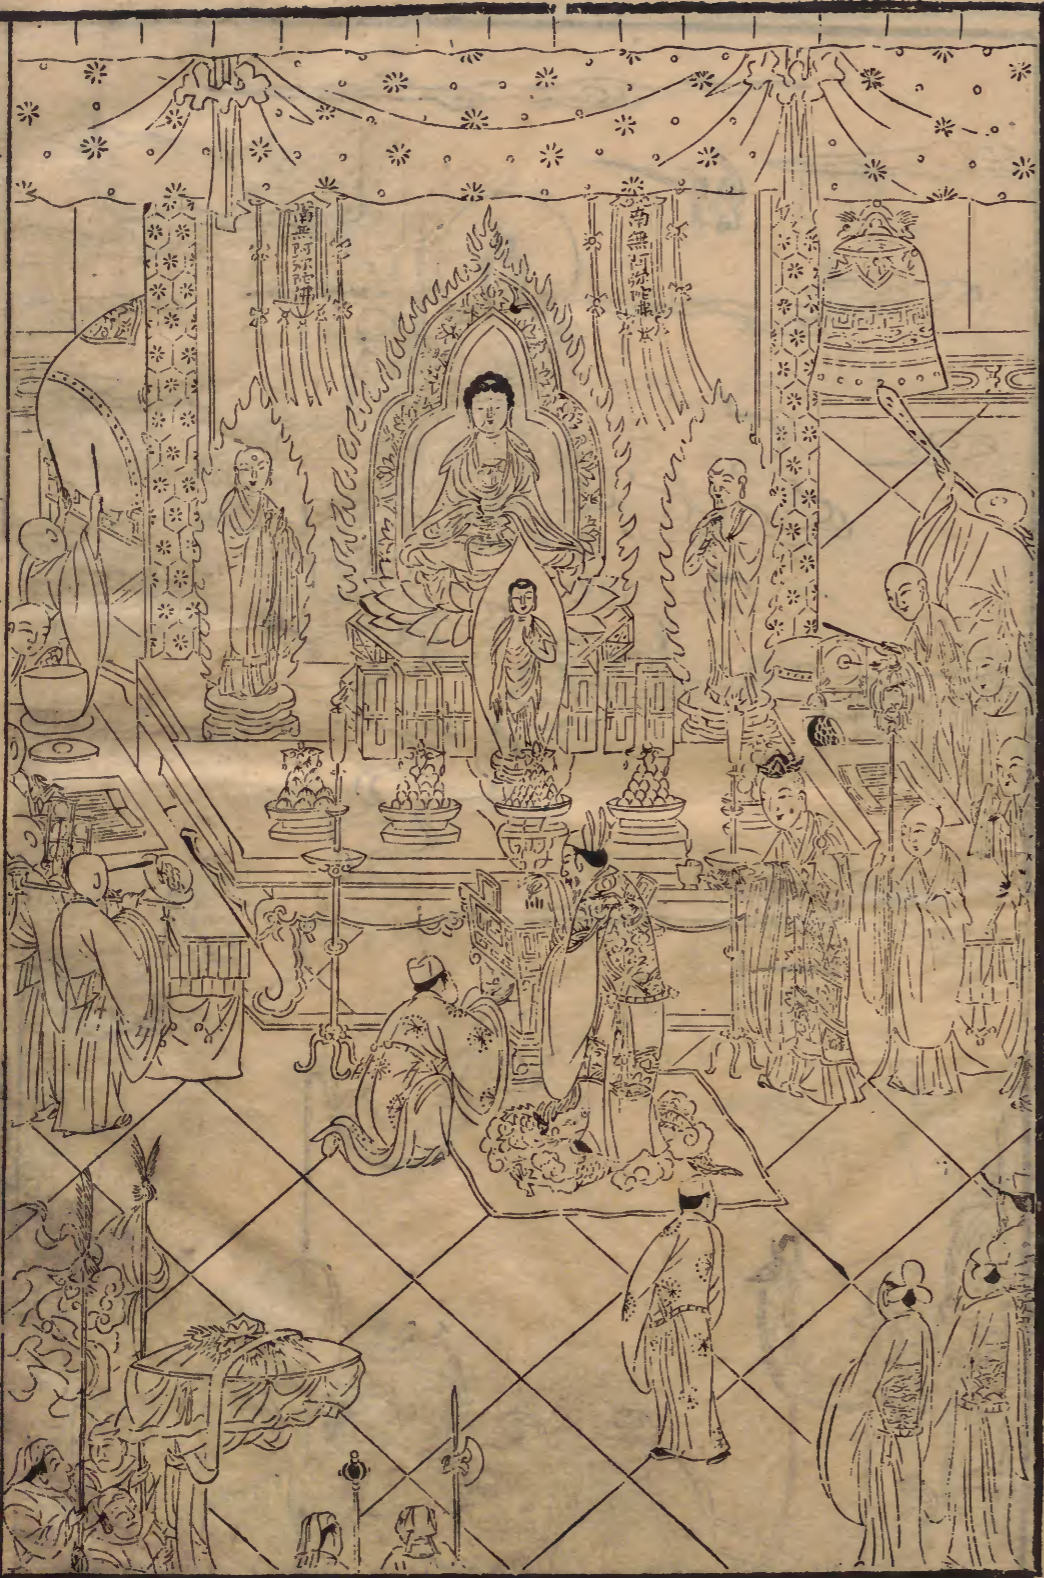 南無阿弥陀佛
南無阿弥陀佛